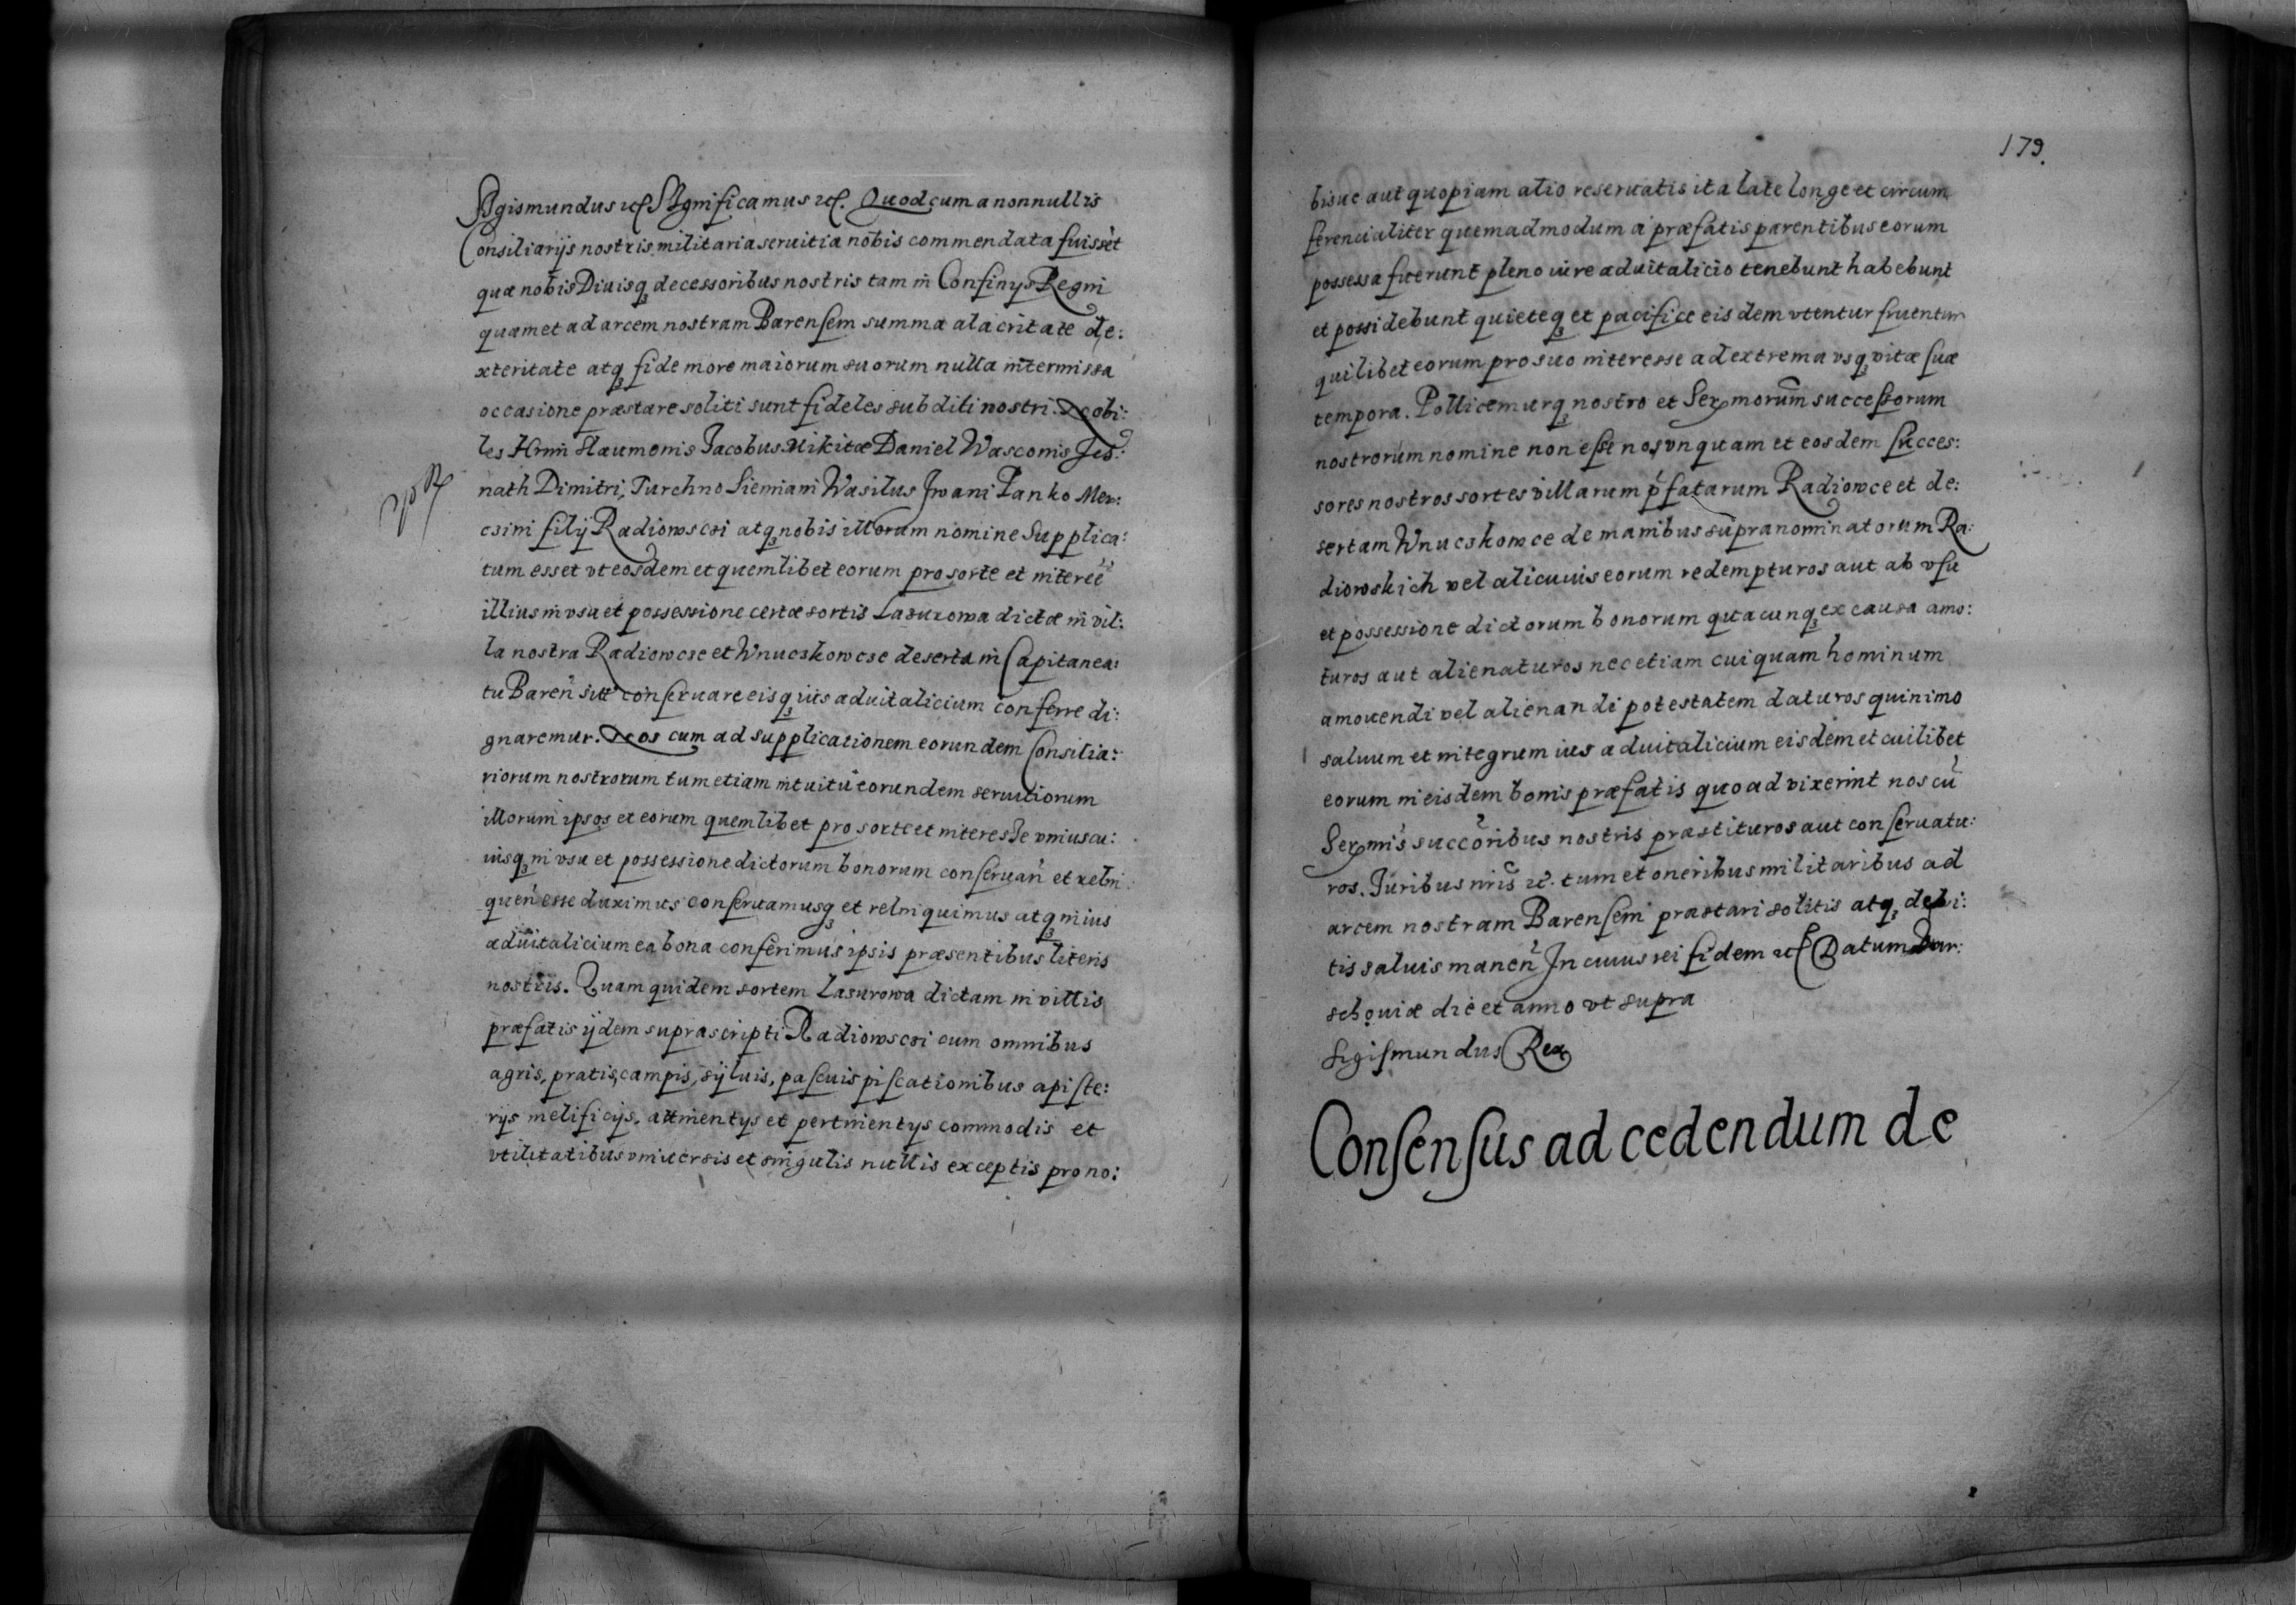 Sigismundus etc Significamus etc. Quod cum a nonnullis
Consiliarijs nostris militaria seruitia nobis commendata fuissēt
quæ nobis Diuisq₃ decessoribus nostris tam in Confinys Regni
quam et ad arcem nostram Barensem summa alacritate de:
xteritate atq₃ fide more maiorum suorum nulla intermissa
occasione præstare soliti sunt fideles subditi nostri. Nobi:
les Hrin Naumonis Jacobus Nikitæ Daniel Wasconis
nath Dimitri, Turchno Siemiani Wasilus Jwani Panko
csini filij Radiowscsi atq₃ nobis illorum nomine Supplica:
tum esset vt eosdem et quemlibet eorum pro sorte et interēē
illius in vsu et possessione certæ sortis Lasurowa dictæ in vil:
la nostra Radiowcse et Wnucskowcse deserta in Capitanea:
tu Bareñ conseruare eisq₃ ius aduitalicium conferre di:
gnaremur. Nos cum ad supplicationem eorundem Consilia:
riorum nostrorum tum etiam intuitu eorundem seruitiorum
illorum ipsos et eorum quemlibet pro sorte et interesse vniuscu:
iusq₃ in vsu et possessione dictorum bonorum conseruañ et relin
queñ esse duximus conseruamusq₃ et relinquimus atq₃ in ius
aduitalicium ea bona conferimus ipsis præsentibus literis
nostris. Quam quidem sortem Lasurowa dictam in villis
præfatis ijdem suprascripti Radiowscsi cum omnibus
agris, pratis, campis, syluis, pascuis piscationibus apiste:
rijs melificijs. attinentys et pertinentys commodis et
vtilitatibus vniuersis et singulis nullis exceptis pro no:
179.
bisue aut quopiam alio reseruatis ita late longe et circum
ferencialiter quemadmodum a præfatis parentibus eorum
possessa fuerunt pleno iure aduitalicio tenebunt habebunt
et possidebunt quieteq₃ et pacifice eisdem vtentur fruentur
quilibet eorum pro suo interesse ad extrema vsq₃ vitæ suæ
tempora. Pollicemurq₃ nostro et Sermorum̄ successorum
nostrorum nomine non esse nos vnquam et eosdem succes:
sores nostros sortes villarum p̄fatarum Radiowce et de:
sertam Wnucskowce de manibus supranominatorum Ra:
diowskich vel alicuius eorum redempturos aut ab vsu
et possessione dictorum bonorum quacunq₃ ex causa amo:
turos aut alienaturos nec etiam cuiquam hominum
amouendi vel alienandi potestatem daturos quinimo
saluum et integrum ius aduitalicium eisdem et cuilibet
eorum in eisdem bonis præfatis quoad vixerint nos cū
Sermis̄ succōribus nostris præstituros aut conseruatu:
ros. Juribus nr̄is etc. tum et oneribus militaribus ad
arcem nostram Barensem præstari solitis atq₃ debi:
tis saluis maneñ In cuius rei fidem etc Datum Var:
schouiæ die et anno vt supra
Sigismundus Rex
Consensus ad cedendum de